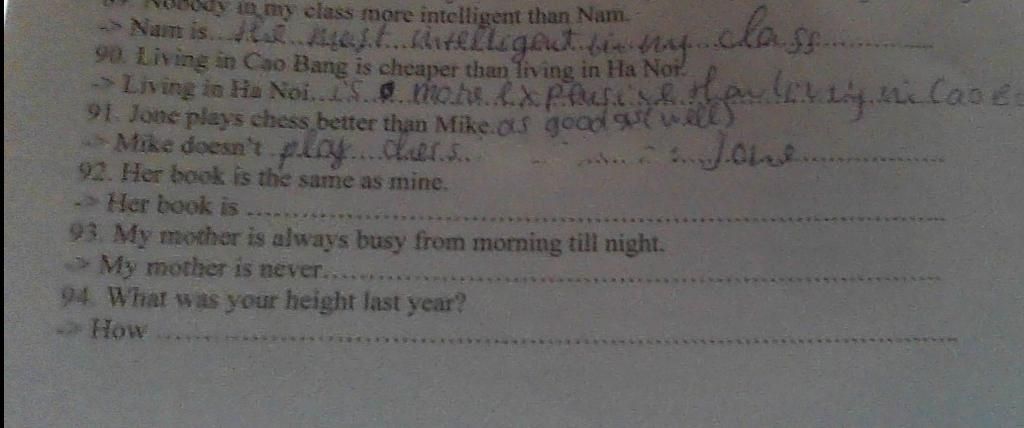 Nobody in my class more intelligent than Nam.
-> Nam is...the most...intelligent in my...class..............
90. Living in Cao Bang is cheaper than living in Ha Noi.
-> Living in Ha Noi...is a more expensive than living in Cao B
91. Jone plays chess better than Mike. as good as (well)
-> Mike doesn't play...chess.. Jone..............
92. Her book is the same as mine.
-> Her book is ..............
93. My mother is always busy from morning till night.
-> My mother is never..............
94. What was your height last year?
-> How ..............